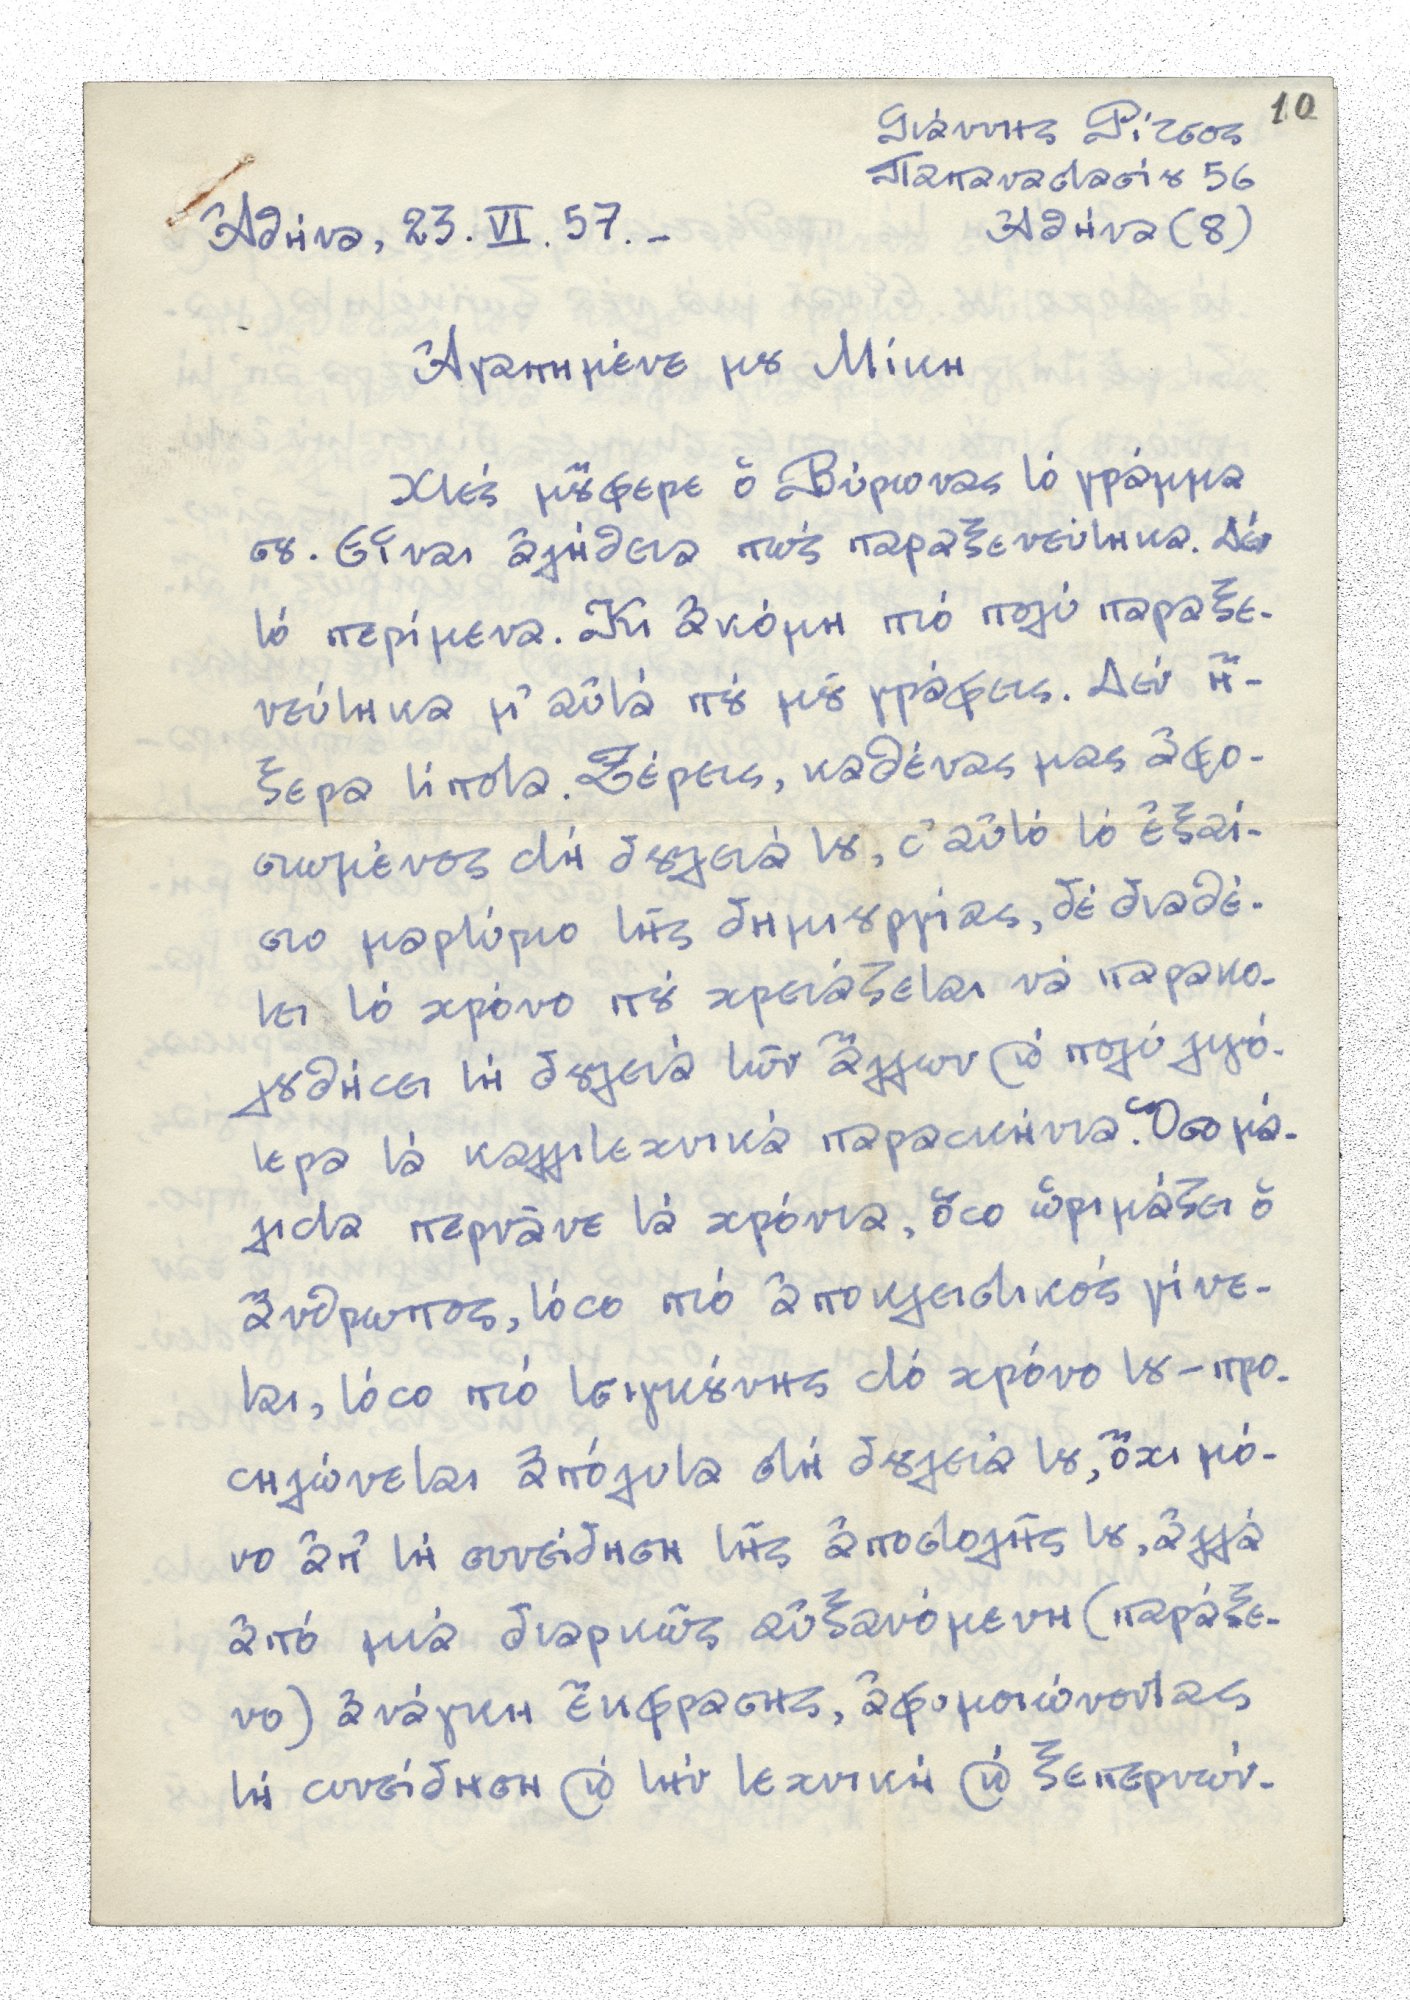 10
Γιάννης Ρίτσος
Παπαναστασίου 56
Ἀθήνα (8)
Ἀθήνα, 23. VI. 57. –
Ἀγαπημένε μου Μίκη
Χτές μοὔφερε ὁ Βύρωνας τό γράμμα
σου. Εἶναι ἀλήθεια πώς παραξενεύτηκα. Δέν
τό περίμενα. Κι ἀκόμη πιό πολύ παραξε-
νεύτηκα μ' αὐτά πού μοῦ γράφεις. Δέν ἤ-
ξερα τίποτα. Ξέρεις, καθένας μας ἀφο-
σιωμένος στή δουλειά του, σ' αὐτό τό ἐξαί-
σιο μαρτύριο τῆς δημιουργίας, δέ διαθέ-
τει τό χρόνο πού χρειάζεται νά παρακο-
λουθήσει τή δουλειά τῶν ἄλλων καί πολύ λιγό-
τερα τά καλλιτεχνικά παρασκήνια. Ὅσο μά-
λιστα περνᾶνε τά χρόνια, ὅσο ὡριμάζει ὁ
ἄνθρωπος, τόσο πιό ἀποκλειστικός γίνε-
ται, τόσο πιό τσιγκούνης στό χρόνο του – προ-
σηλώνεται ἀπόλυτα στή δουλειά του, ὄχι μό-
νο ἀπ' τή συνείδηση τῆς ἀποστολῆς του, ἀλλά
ἀπό μιά διαρκῶς αὐξανόμενη (παράξε-
νο) ἀνάγκη ἔκφρασης, ἀφομοιώνοντας
τή συνείδηση καί τήν τεχνική καί ξεπερνών-